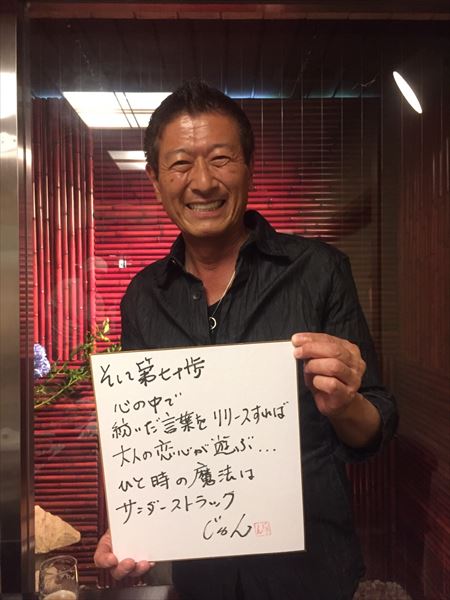 そして第七十歩
心の中で
紡いだ言葉をリリースすれば
大人の恋心が遊ぶ...
ひと時の魔法は
サンダーストラック
じゅん